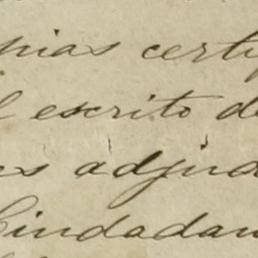 pias certi
l escrito de
es adjud
Ciudadan